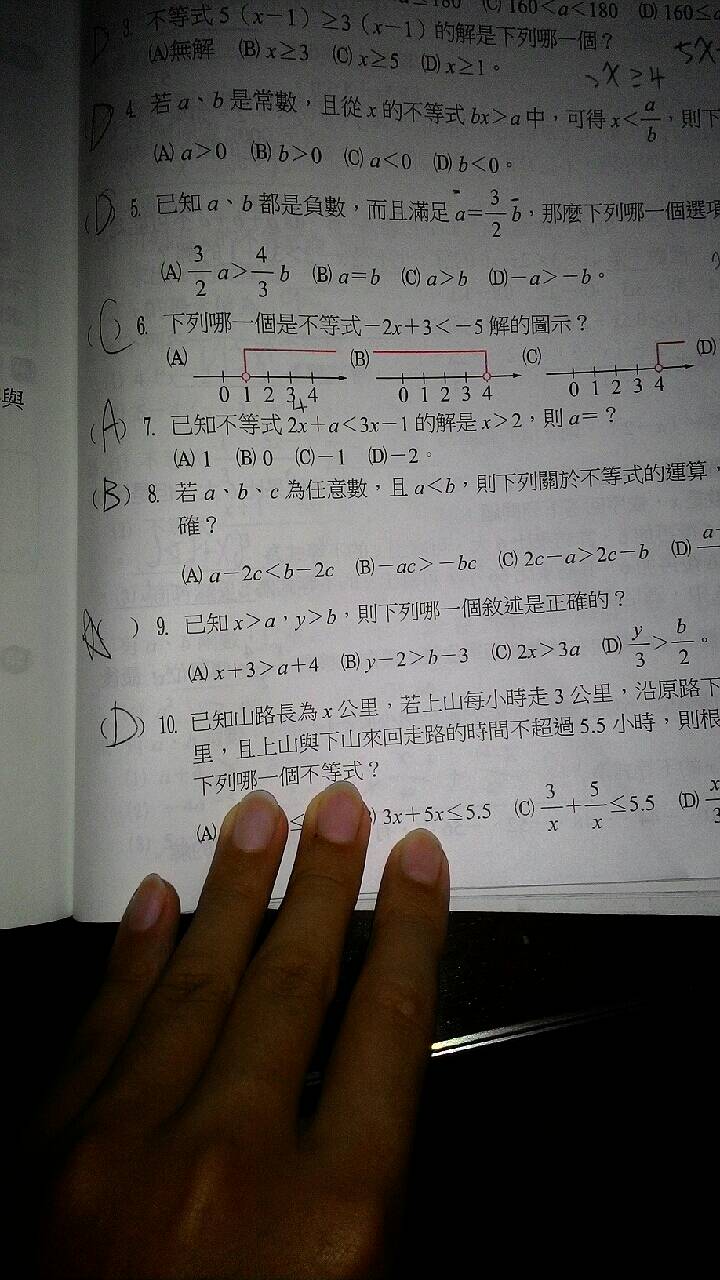 ≤180 (C) 160<a<180 (D) 160≤a
D 3. 不等式 5（x−1）≥3（x−1）的解是下列哪一個？
5x
(A)無解 (B) x≥3 (C) x≥5 (D) x≥1。
x≥4
D 4. 若 a、b 是常數，且從 x 的不等式 bx>a 中，可得 x<a/b，則下
(A) a>0 (B) b>0 (C) a<0 (D) b<0。
(D) 5. 已知 a、b 都是負數，而且滿足 a=3/2 b，那麼下列哪一個選項
(A) 3/2 a>4/3 b (B) a=b (C) a>b (D)−a>−b。
(C) 6. 下列哪一個是不等式−2x+3<−5 解的圖示？
(A) (B) (C) (D)
0 1 2 3 4 0 1 2 3 4 0 1 2 3 4
4
與
(A) 7. 已知不等式 2x+a<3x−1 的解是 x>2，則 a=？
(A) 1 (B) 0 (C)−1 (D)−2。
(B) 8. 若 a、b、c 為任意數，且 a<b，則下列關於不等式的運算，
確？
(A) a−2c<b−2c (B)−ac>−bc (C) 2c−a>2c−b (D) a−
) 9. 已知 x>a，y>b，則下列哪一個敘述是正確的？
(A) x+3>a+4 (B) y−2>b−3 (C) 2x>3a (D) y/3>b/2。
(D) 10. 已知山路長為 x 公里，若上山每小時走 3 公里，沿原路下
里，且上山與下山來回走路的時間不超過 5.5 小時，則根
下列哪一個不等式？
(A) ≤ ) 3x+5x≤5.5 (C) 3/x+5/x≤5.5 (D) x/3